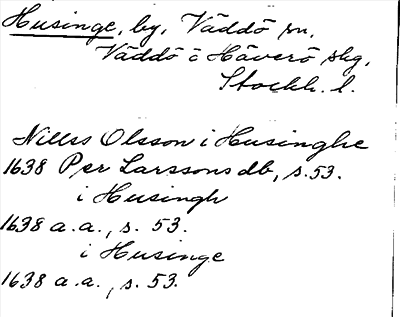 Husinge, by, Väddö sn,
Väddö o Häverö skg,
Stockh. l.
Nilss Olsson i Husinghe
1638 Per Larssons db, s. 53.
i Husingh
1638 a.a., s. 53.
i Husinge
1638 a.a., s. 53.